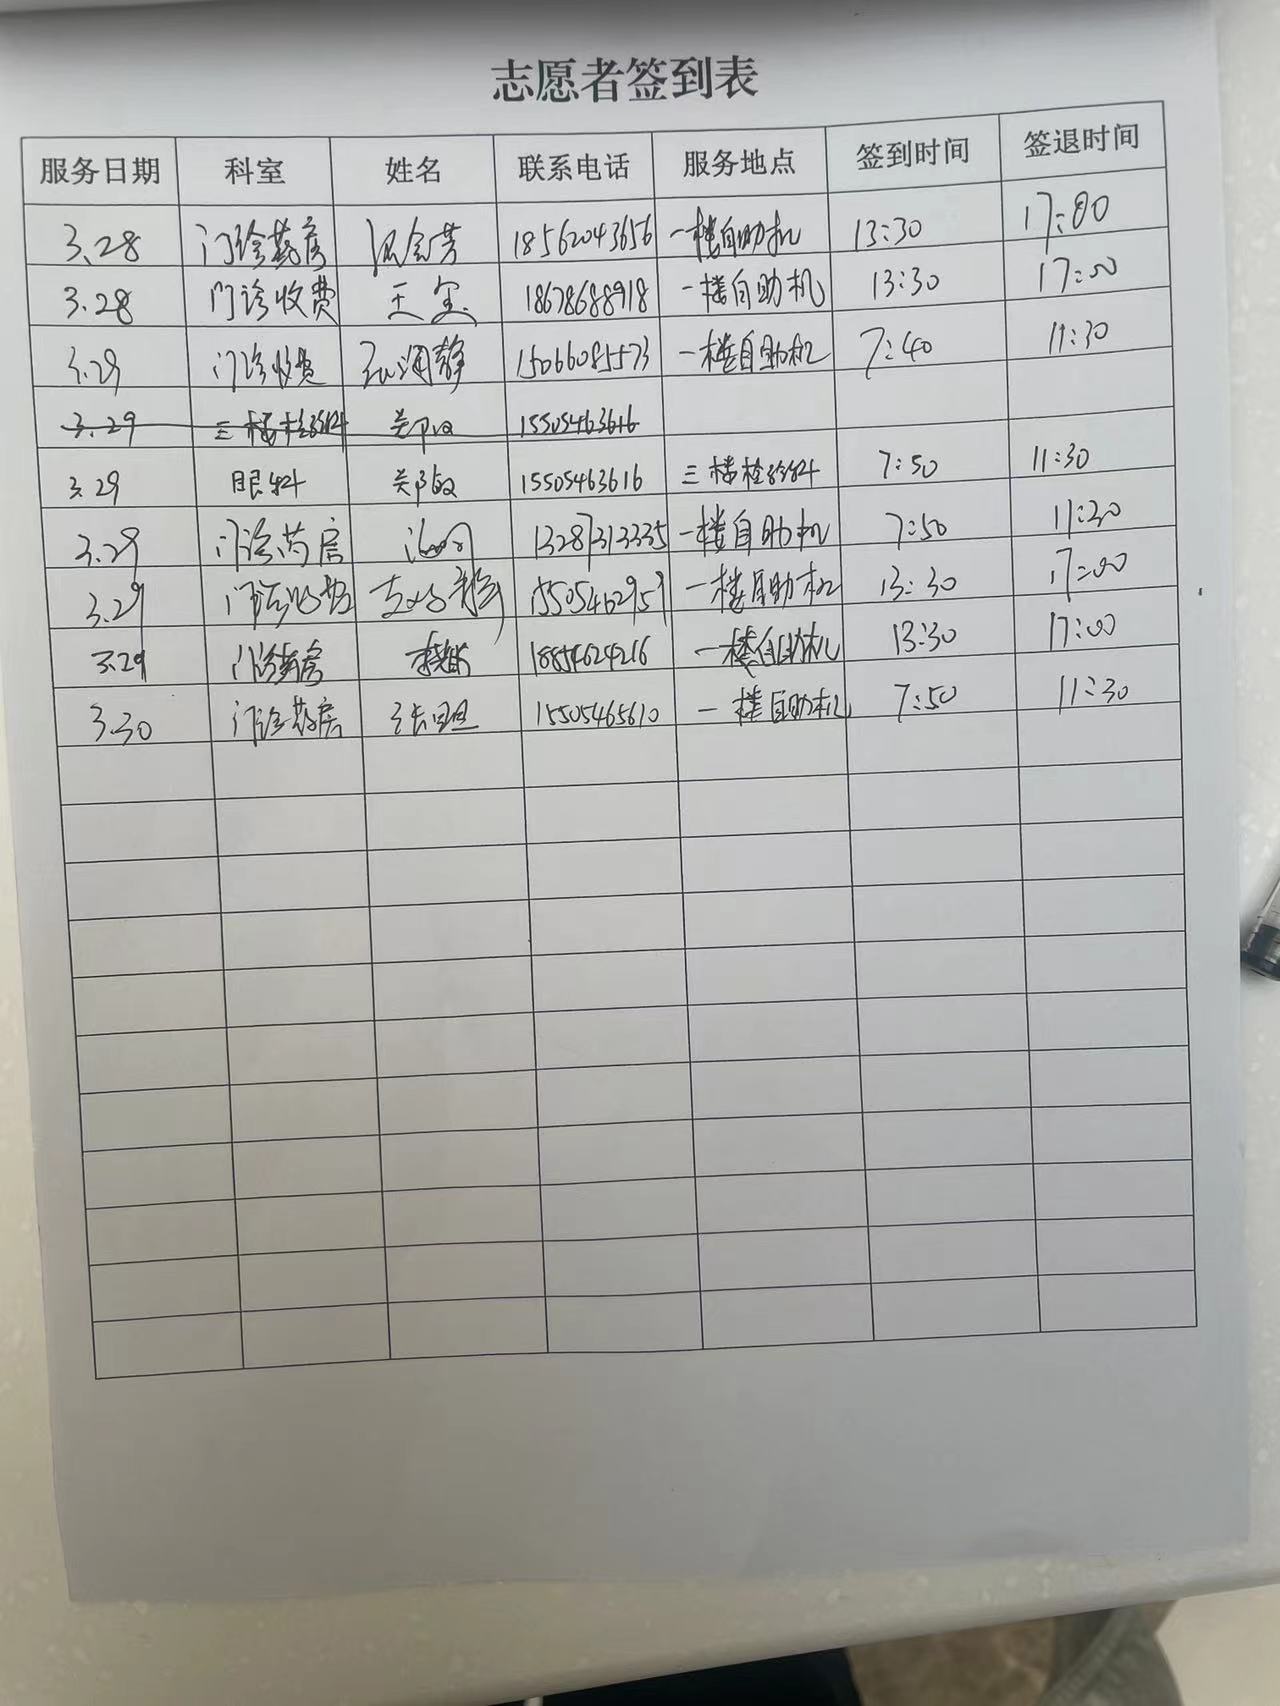 志愿者签到表
服务日期 科室 姓名 联系电话 服务地点 签到时间 签退时间
3.28 门诊药房 18562043656 一楼自助机 13:30 17:00
3.28 门诊收费 王玺 18678688918 一楼自助机 13:30 17:00
3.29 门诊收费 15066085573 一楼自助机 7:40 11:30
3.29 三楼检验科 15505463616
3.29 眼科 15505463616 三楼检验科 7:50 11:30
3.29 门诊药房 13287313335 一楼自助机 7:50 11:30
3.29 门诊收费 15505462959 一楼自助机 13:30 17:00
3.29 门诊药房 18854624216 一楼自助机 13:30 17:00
3.30 门诊药房 15505465610 一楼自助机 7:50 11:30